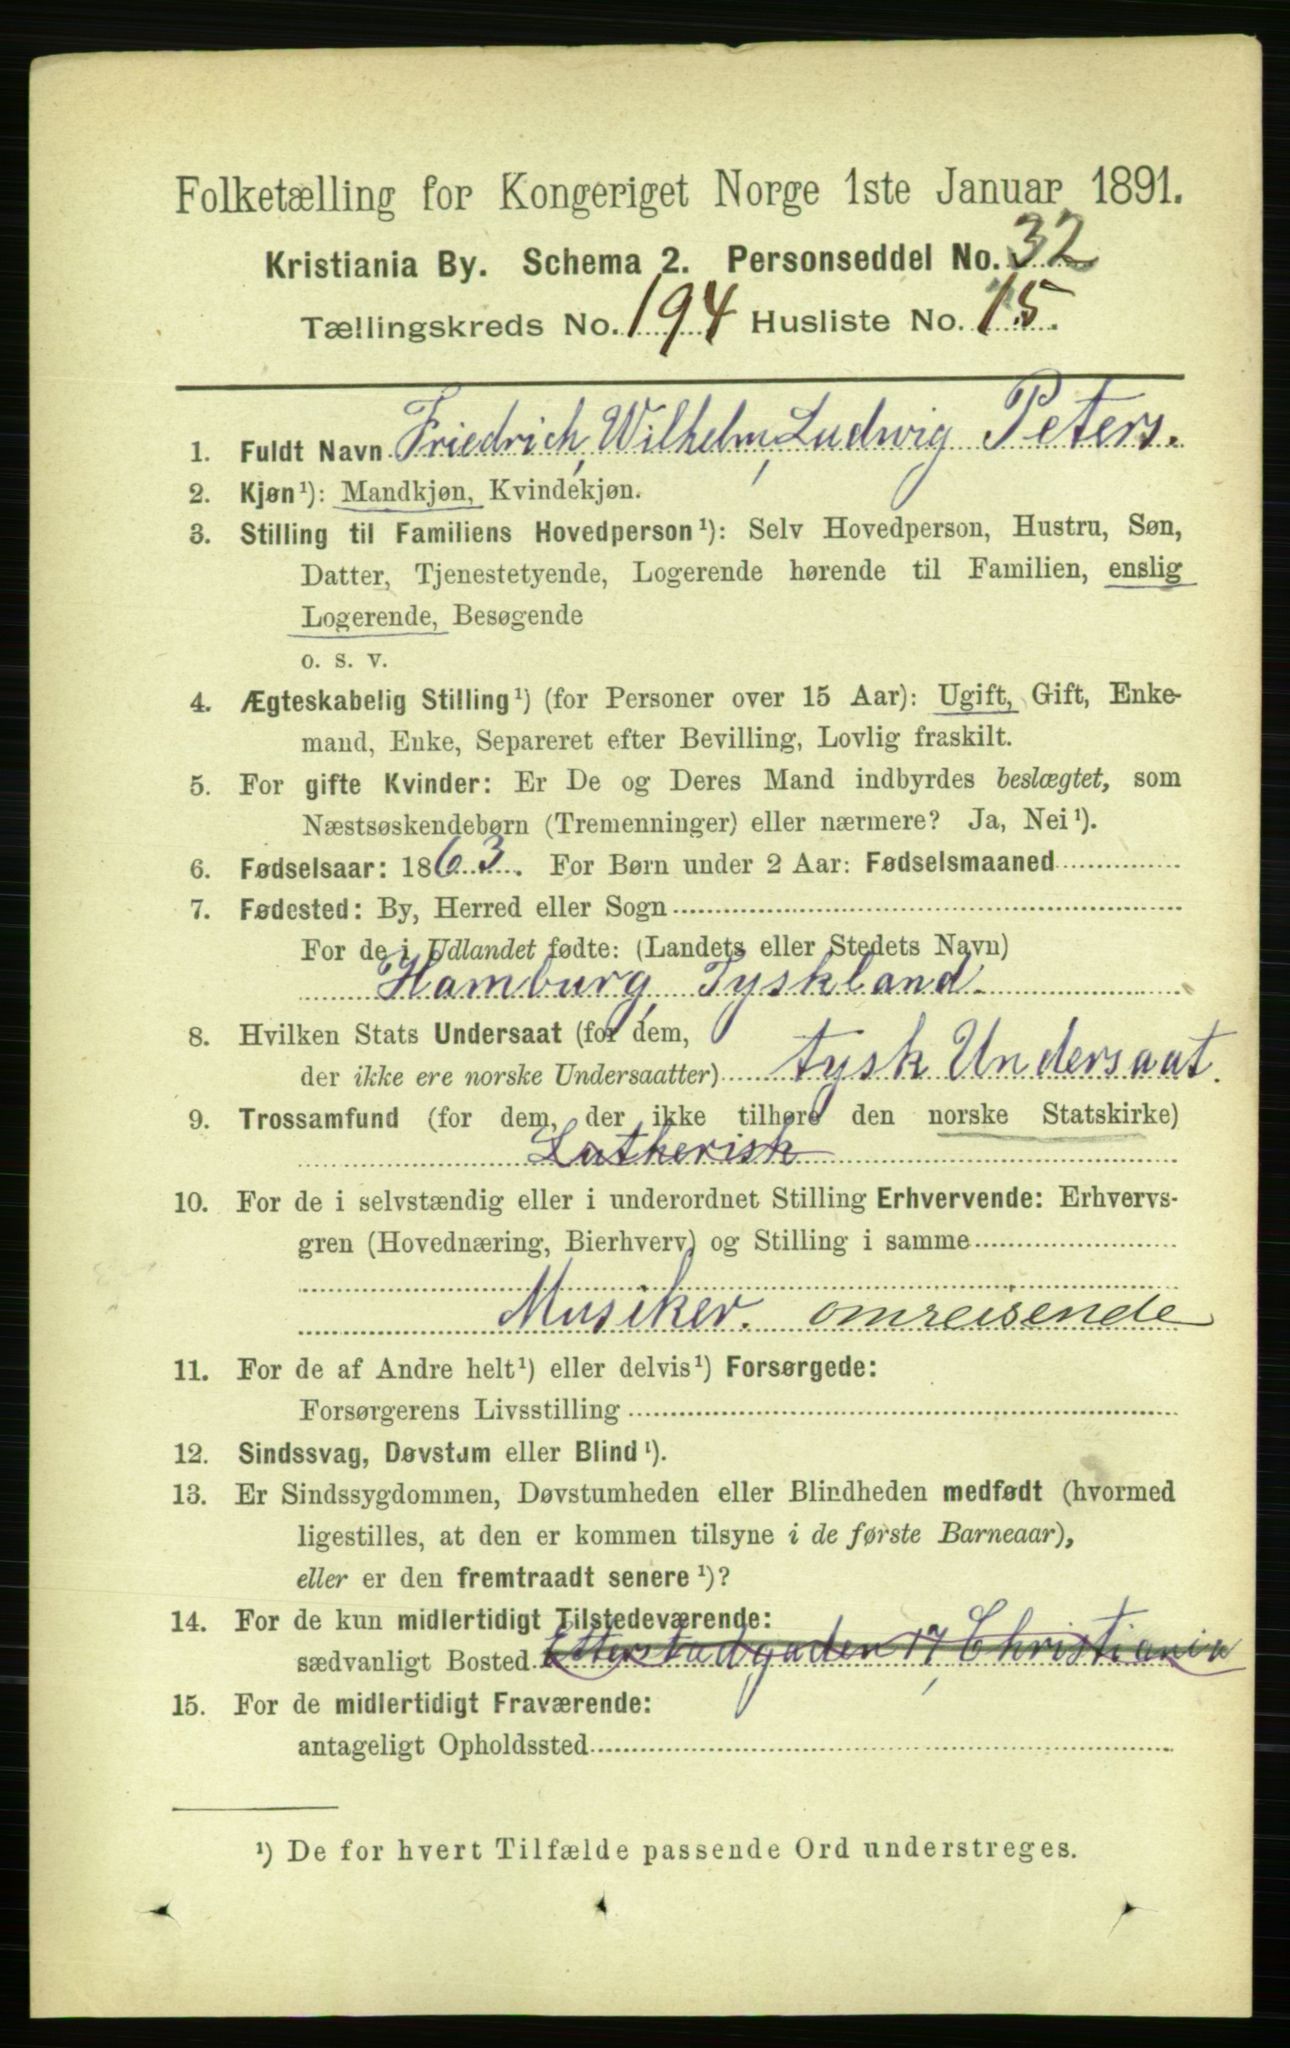 Folketælling for Kongeriget Norge 1ste Januar 1891.
Kristiania By. Schema 2. Personseddel No. 32
Tællingskreds No. 194 Husliste No. 15.
1. Fuldt Navn Friedrich, Wilhelm, Ludwig Peters.
2. Kjøn¹): Mandkjøn, Kvindekjøn.
3. Stilling til Familiens Hovedperson¹): Selv Hovedperson, Hustru, Søn,
Datter, Tjenestetyende, Logerende hørende til Familien, enslig
Logerende, Besøgende
o. s. v.
4. Ægteskabelig Stilling¹) (for Personer over 15 Aar): Ugift, Gift, Enke-
mand, Enke, Separeret efter Bevilling, Lovlig fraskilt.
5. For gifte Kvinder: Er De og Deres Mand indbyrdes beslægtet, som
Næstsøskendebørn (Tremenninger) eller nærmere? Ja, Nei¹).
6. Fødselsaar: 1863. For Børn under 2 Aar: Fødselsmaaned
7. Fødested: By, Herred eller Sogn
For de i Udlandet fødte: (Landets eller Stedets Navn)
Hamburg, Tyskland.
8. Hvilken Stats Undersaat (for dem,
der ikke ere norske Undersaatter) tysk Undersaat.
9. Trossamfund (for dem, der ikke tilhøre den norske Statskirke)
Lutherish
10. For de i selvstændig eller i underordnet Stilling Erhvervende: Erhvervs-
gren (Hovednæring, Bierhverv) og Stilling i samme
Musiker. omreisende
11. For de af Andre helt¹) eller delvis¹) Forsørgede:
Forsørgerens Livsstilling
12. Sindssvag, Døvstum eller Blind¹).
13. Er Sindssygdommen, Døvstumheden eller Blindheden medfødt (hvormed
ligestilles, at den er kommen tilsyne i de første Barneaar),
eller er den fremtraadt senere¹)?
14. For de kun midlertidigt Tilstedeværende:
sædvanligt Bosted Etterstadgaden 17, Christiania
15. For de midlertidigt Fraværende:
antageligt Opholdssted
¹) De for hvert Tilfælde passende Ord understreges.